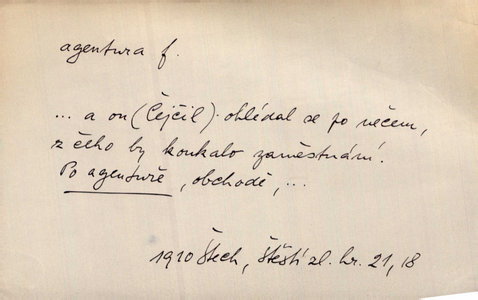 agentura f.
... a on (Čejčil) ohlédal se po něčem,
z čeho by koukalo zaměstnání.
Po agentuře, obchodě, ...
1910 Štech, Štěstí zl. hr. 21, 18